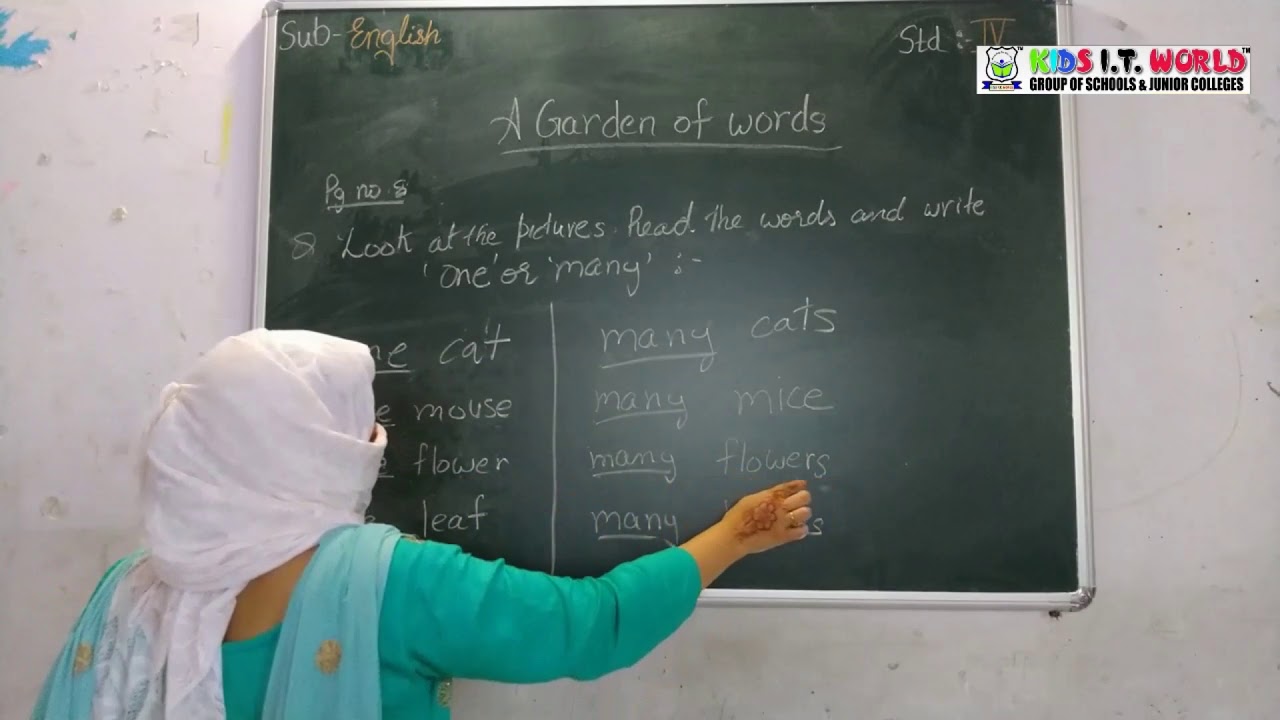 Sub- English
Std :- IV
KIDS I.T. WORLD™
GROUP OF SCHOOLS & JUNIOR COLLEGES
A Garden of words
Pg no. 8
Q Look at the pictures. Read the words and write
'one' or 'many' :-
cat many cats
mouse many mice
flower many flowers
leaf many